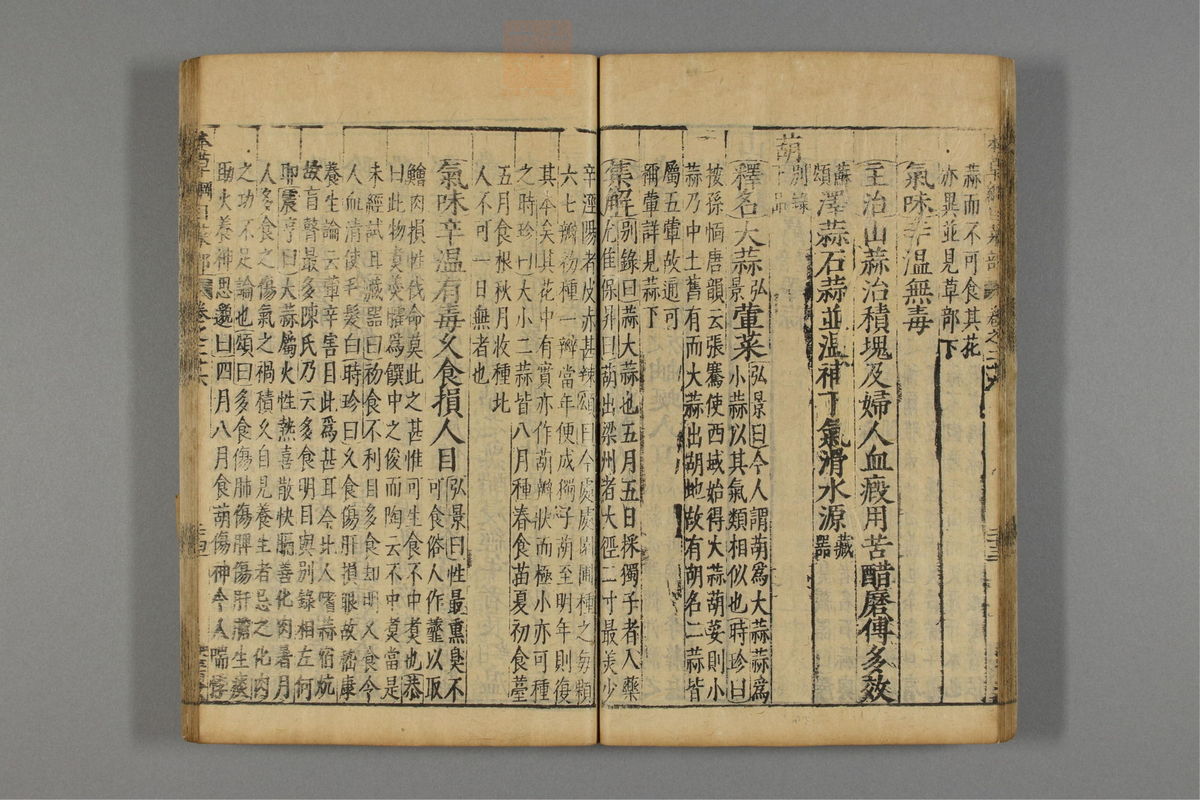 蒜而不可食其花
亦異並見草部下
氣味辛溫無毒
主治山蒜治積塊及婦人血瘕用苦醋磨傅多效
蘇頌
澤蒜石蒜並溫補下氣滑水源藏器
葫
別錄
下品
釋名大蒜弘景葷菜弘景曰今人謂葫為大蒜蒜為
小蒜以其氣類相似也時珍曰
按孫愐唐韻云張騫使西域始得大蒜葫荽則小
蒜乃中土舊有而大蒜出胡地故有胡名二蒜皆
屬五葷故通可
稱葷詳見蒜下
集解別錄曰葫大蒜也五月五日採獨子者入藥
尤佳保昇曰葫出梁州者大徑二寸最美少
辛涇陽者皮赤甚辣頌曰今處處園圃種之每顆
六七瓣初種一瓣當年便成獨子葫至明年則復
其本矣其花中有實亦作葫瓣狀而極小亦可種
之時珍曰大小二蒜皆八月種春食苗夏初食薹
五月食根秋月收種北
人不可一日無者也
氣味辛溫有毒久食損人目弘景曰性最熏臭不
可食俗人作虀以啖
鱠肉損性伐命莫此之甚惟可生食不中煮也恭
曰此物煮羹臛為饌中之俊而陶云不中煮當是
未經試耳藏器曰初食不利目多食却明久食令
人血清使毛髮白時珍曰久食傷肝損眼故嵇康
養生論云葷辛害目此為甚耳今北人嗜蒜宿炕
故盲瞽最多陳氏乃云多食明目與別錄相左何
耶震亨曰大蒜屬火性熱喜散快膈善化肉暑月
人多食之傷氣之禍積久自見養生者忌之化肉
之功不足論也頌曰多食傷肺傷脾傷肝膽生痰
助火養神思邈曰四月八月食葫傷神令人喘悸
本草綱目菜部
卷之二十六
二十三
本草綱目菜部
卷之二十六
二十四